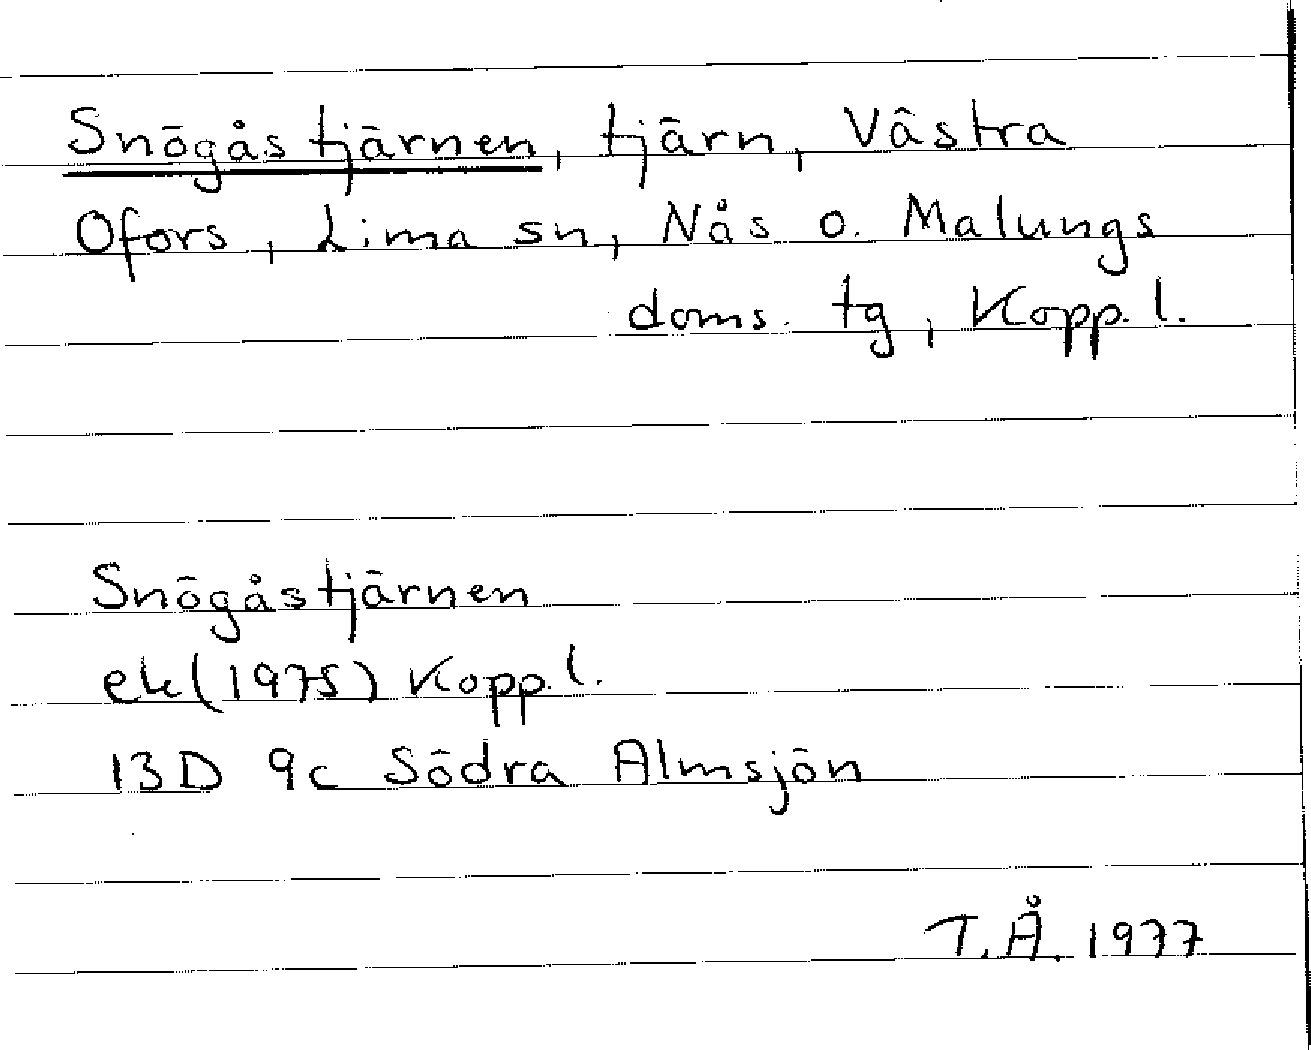 Snögåstjärnen, tjärn, Västra
Ofors, Lima sn, Nås o. Malungs
doms. tg, Kopp. l.
Snögåstjärnen
ek (1975) Kopp. l.
13D 9c Södra Almsjön
T.Å. 1977